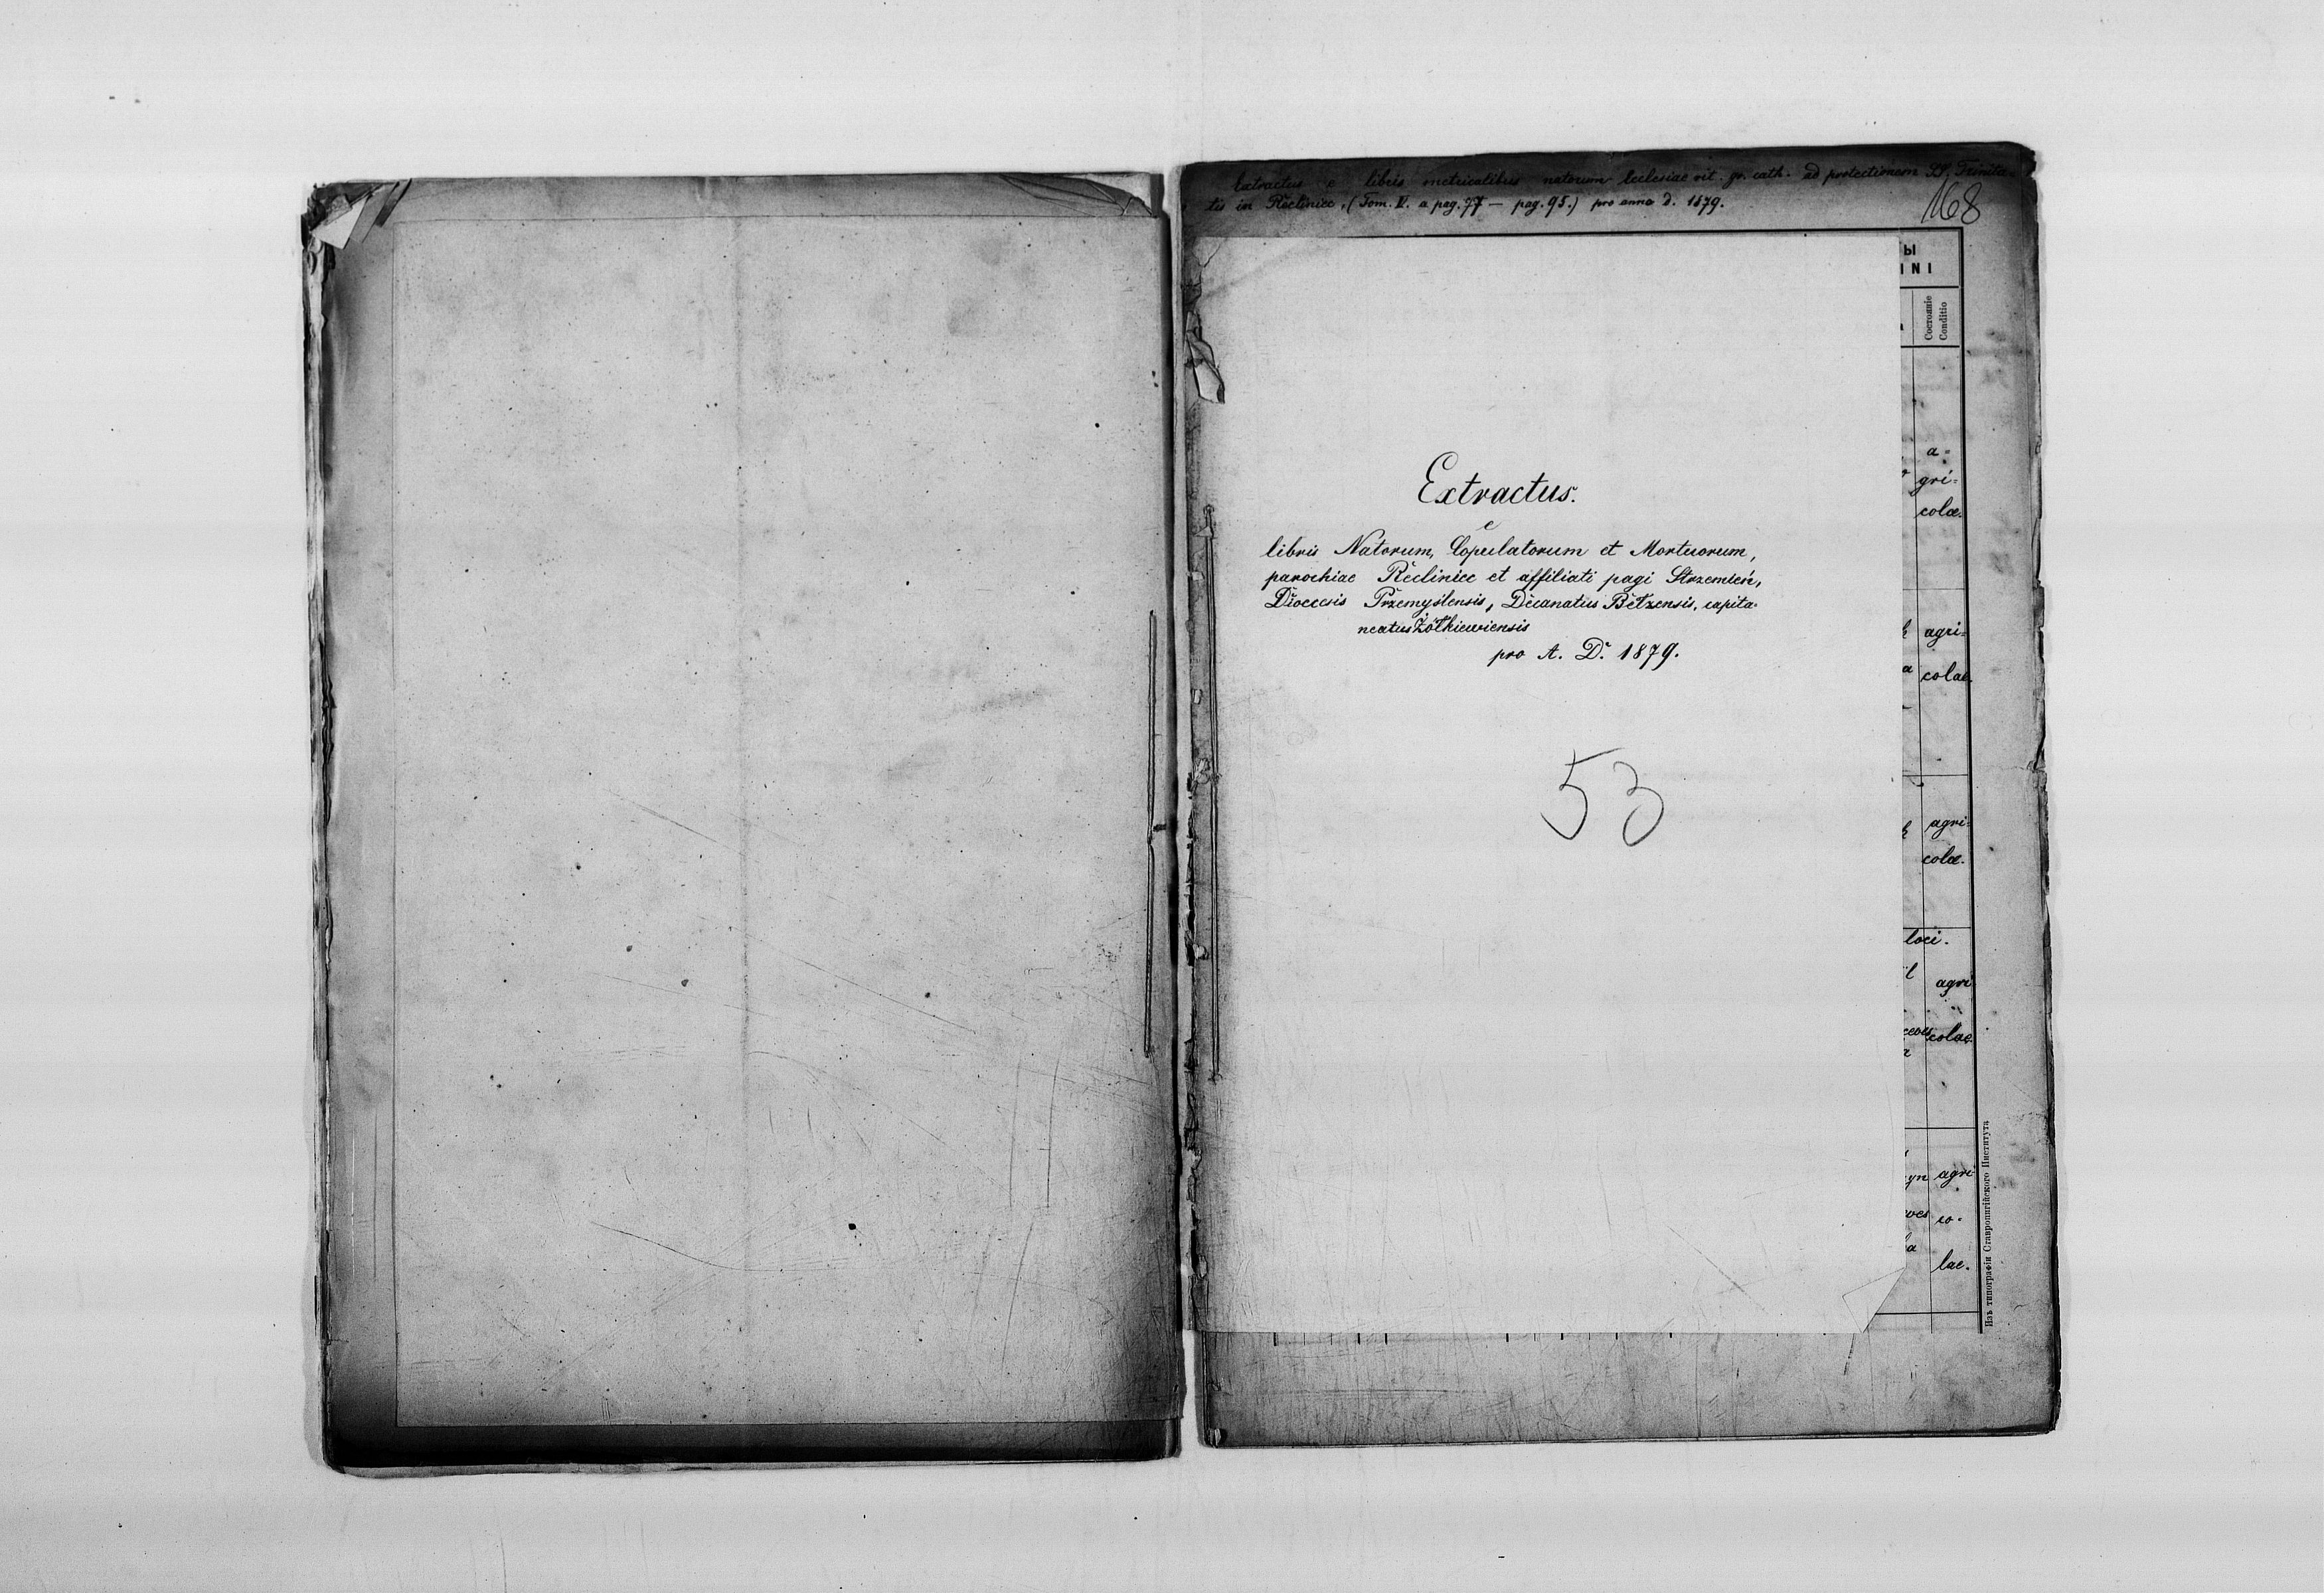 Extractus e libris metricalibus natorum Ecclesiae rit. gr. cath. ad protectionem SS. Trinita-
tis in Rèclinice, (Tom. V. a pag. 77 — pag. 95.) pro anno d. 1879.
168
Ы
INI
Состоянie
Conditio
Extractus.
e
libris Natorum, Copulatorum et Mortuorum,
parochiae Rèclinice et affiliati pagi Strzemień,
Dioecesis Przemyślensis, Decanatus Bełzensis, capita-
neatus Żółkiewiensis
pro A. D. 1879.
53
a-
gri-
colæ.
agri-
colae.
agri-
colæ.
loci.
agri
colae
agri
co-
lae.
Изъ типографіи Ставропигійского Института